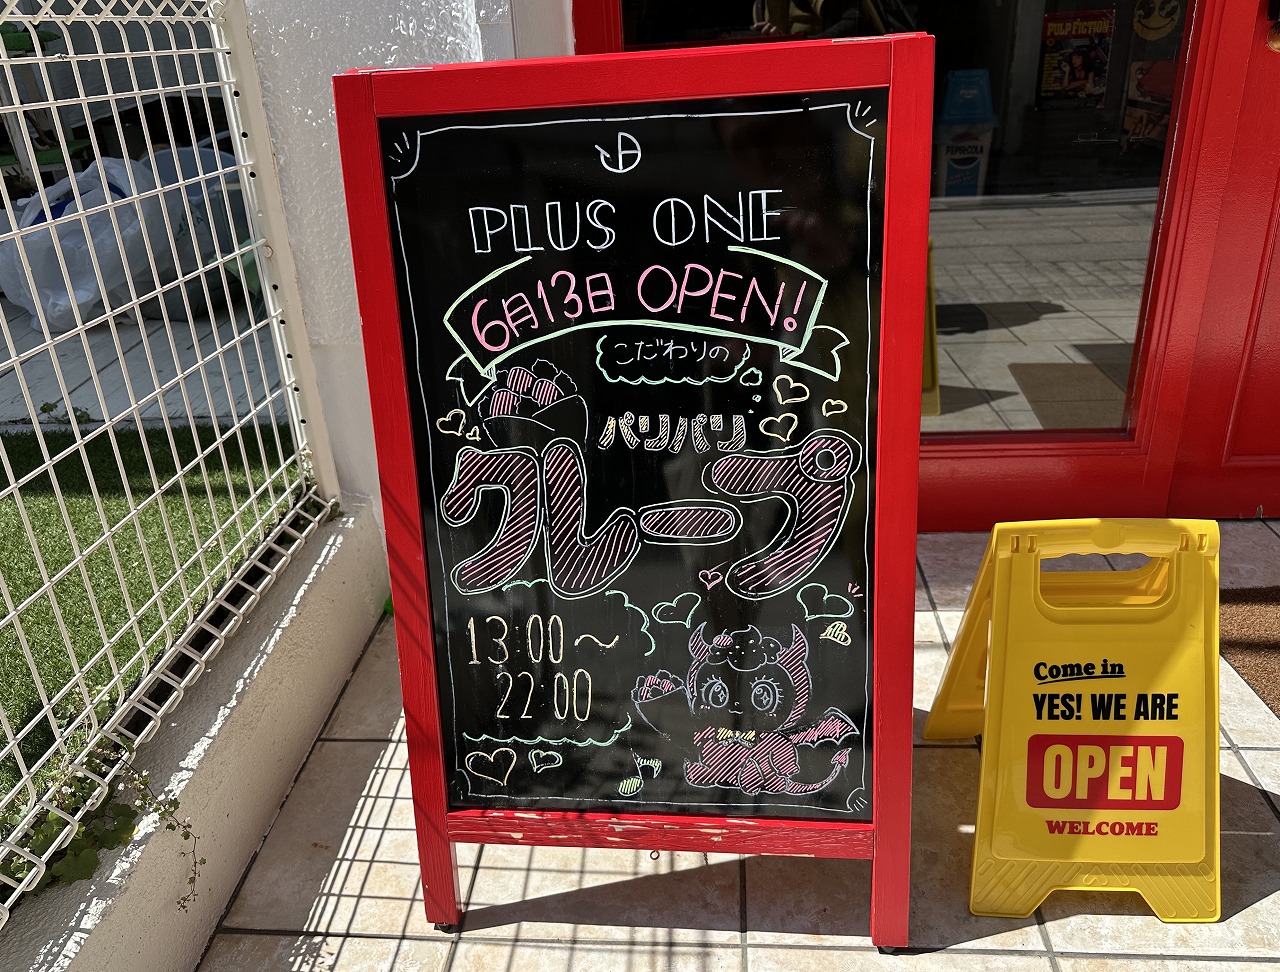 PLUS ONE
6月13日 OPEN!
こだわりの
パリパリ
クレープ
13:00〜
22:00
PULP FICTION
PEPSI-COLA
Come in
YES! WE ARE
OPEN
WELCOME